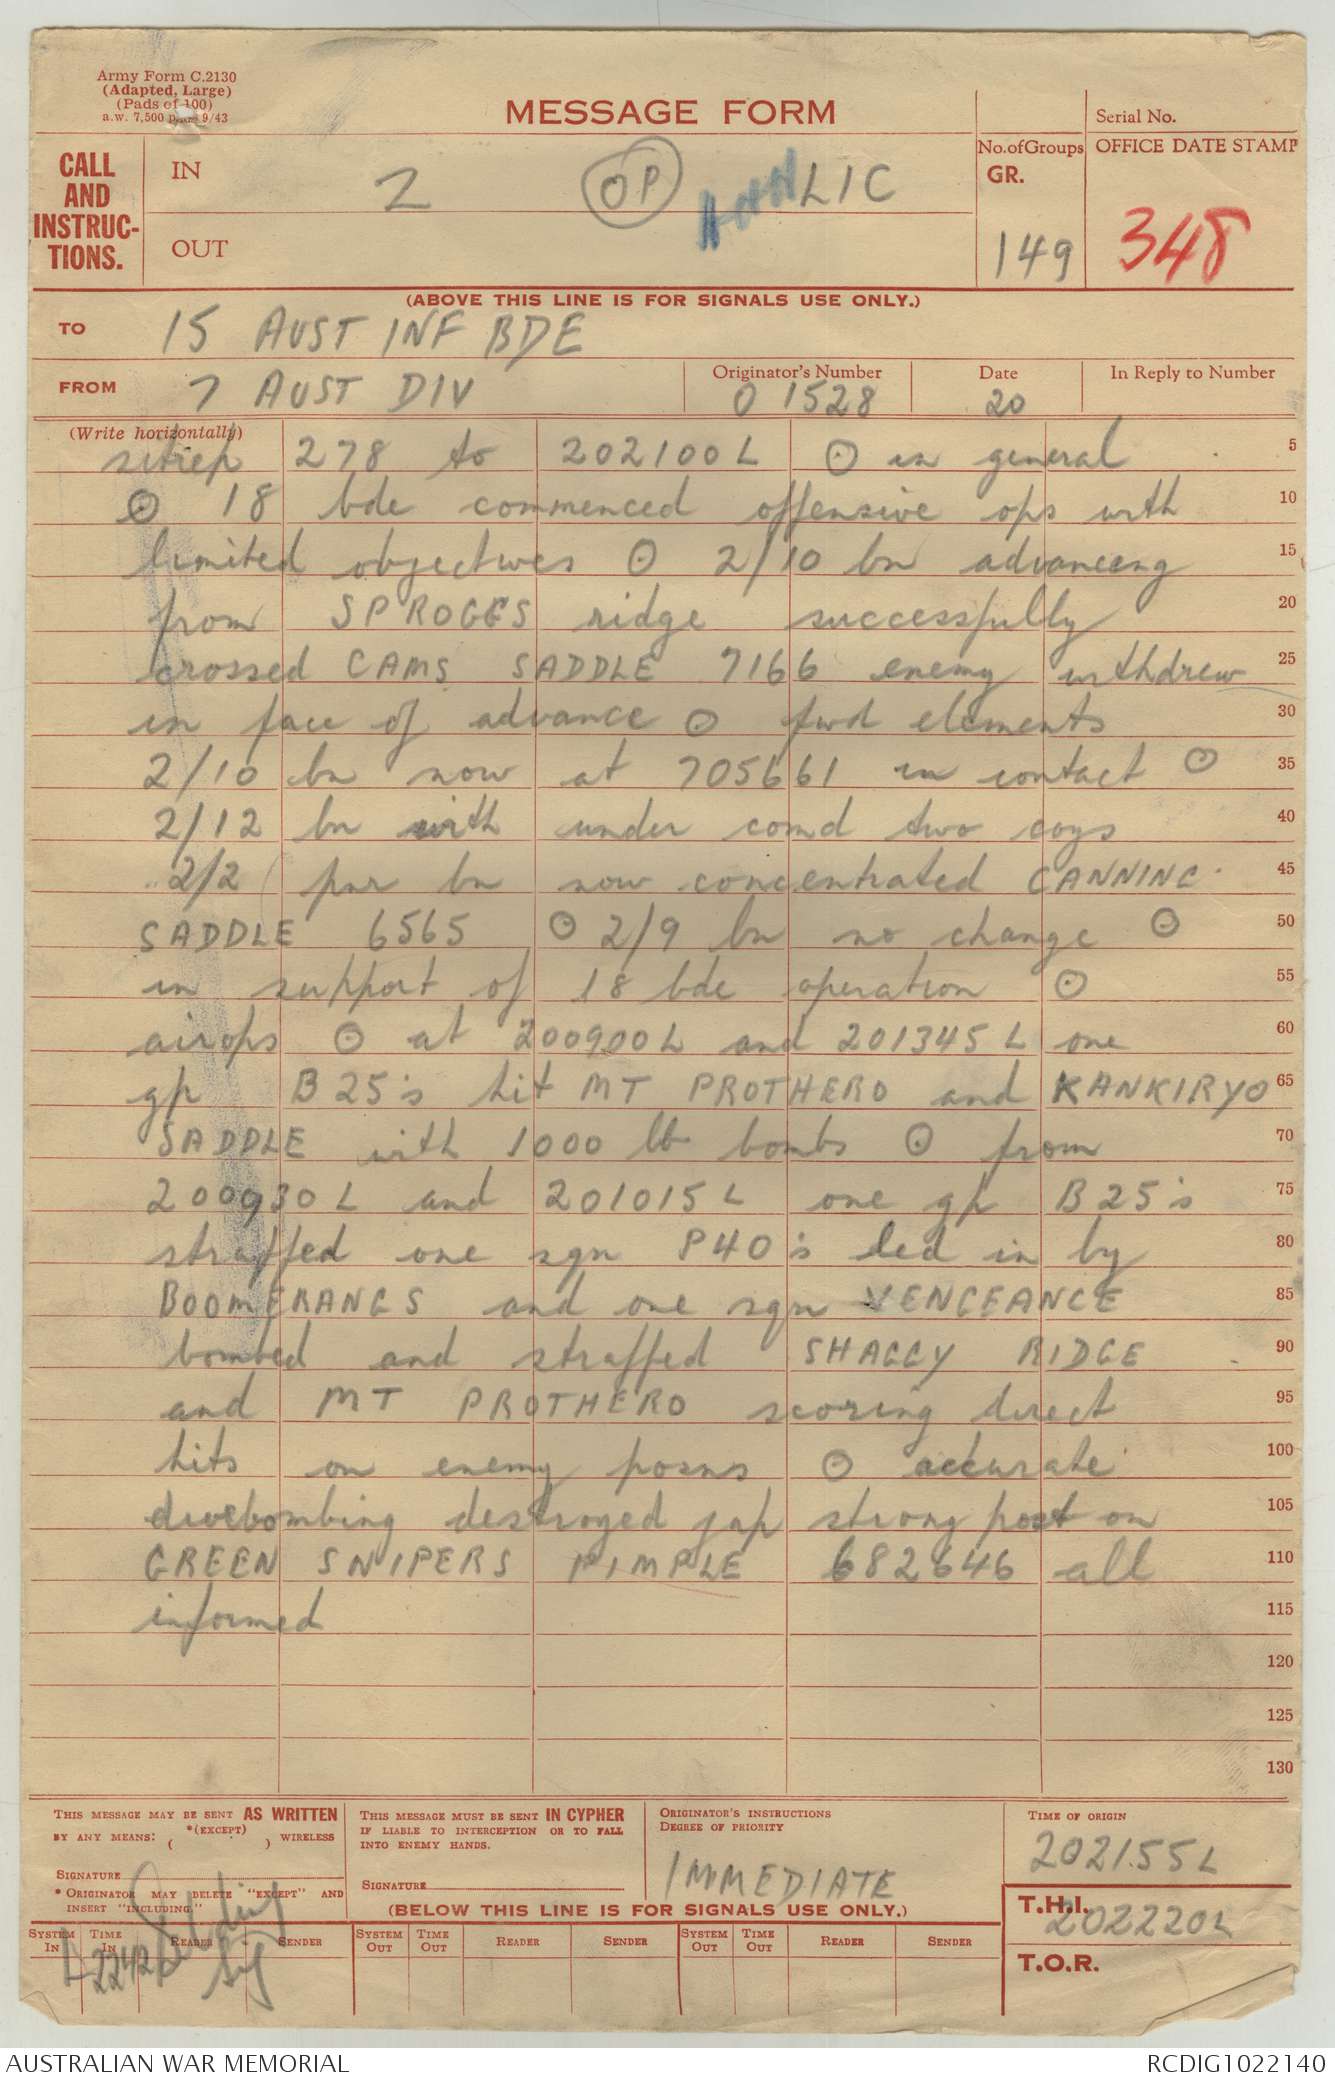 Army Form C.2130
(Adapted, Large)
(Pads of 100)
a.w. 7,500 9/43
MESSAGE FORM
Serial No.
CALL AND INSTRUC-TIONS.
IN
2
OP
LIC
No. of Groups
GR.
149
OFFICE DATE STAMP
348
OUT
(ABOVE THIS LINE IS FOR SIGNALS USE ONLY.)
TO 15 AUST INF BDE
FROM 7 AUST DIV
Originator's Number
O 1528
Date
20
In Reply to Number
(Write horizontally)
sitrep 278 to 202100L ⊙ in general 5
⊙ 18 bde commenced offensive ops with 10
limited objectives ⊙ 2/10 bn advanceing 15
from SPROGGS ridge successfully 20
crossed CAMS SADDLE 7166 enemy withdrew 25
in face of advance ⊙ fwd elements 30
2/10 bn now at 705661 in contact ⊙ 35
2/12 bn with under comd two coys 40
2/2 pnr bn now concentrated CANNING 45
SADDLE 6565 ⊙ 2/9 bn no change ⊙ 50
in support of 18 bde operation ⊙ 55
airops ⊙ at 200900L and 201345L one 60
gp B25's hit MT PROTHERO and KANKIRYO 65
SADDLE with 1000 lb bombs ⊙ from 70
200930L and 201015L one gp B25's 75
straffed one sqn P40's led in by 80
BOOMERANGS and one sqn VENGEANCE 85
bombed and straffed SHAGGY RIDGE 90
and MT PROTHERO scoring direct 95
hits on enemy posns ⊙ accurate 100
divebombing destroyed jap strong post on 105
GREEN SNIPERS PIMPLE 682646 all 110
informed 115
120
125
130
THIS MESSAGE MAY BE SENT AS WRITTEN
BY ANY MEANS: *(EXCEPT) ( ) WIRELESS
SIGNATURE
* ORIGINATOR MAY DELETE "EXCEPT" AND
INSERT "INCLUDING."
THIS MESSAGE MUST BE SENT IN CYPHER
IF LIABLE TO INTERCEPTION OR TO FALL
INTO ENEMY HANDS.
SIGNATURE
ORIGINATOR'S INSTRUCTIONS
DEGREE OF PRIORITY
IMMEDIATE
TIME OF ORIGIN
202155L
(BELOW THIS LINE IS FOR SIGNALS USE ONLY.)
T.H.I.
202220L
T.O.R.
SYSTEM IN
TIME IN
READER
SENDER
SYSTEM OUT
TIME OUT
READER
SENDER
SYSTEM OUT
TIME OUT
READER
SENDER
2242
AUSTRALIAN WAR MEMORIAL
RCDIG1022140